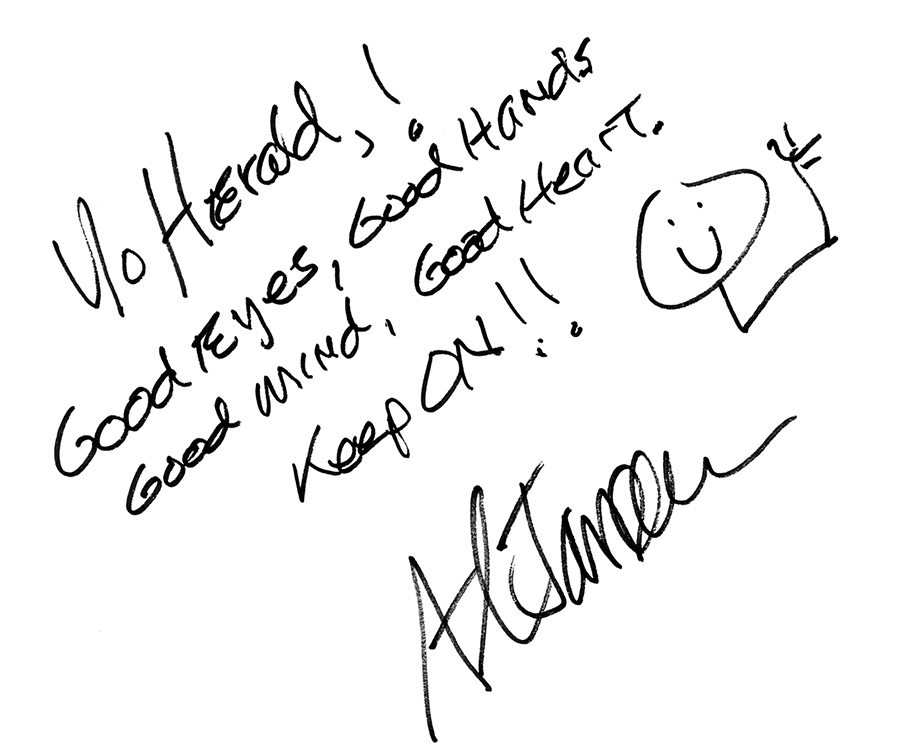 Yo Herald,!
Good Eyes, Good Hands
Good Mind, Good Heart.
Keep ON!!
Al Jarreau